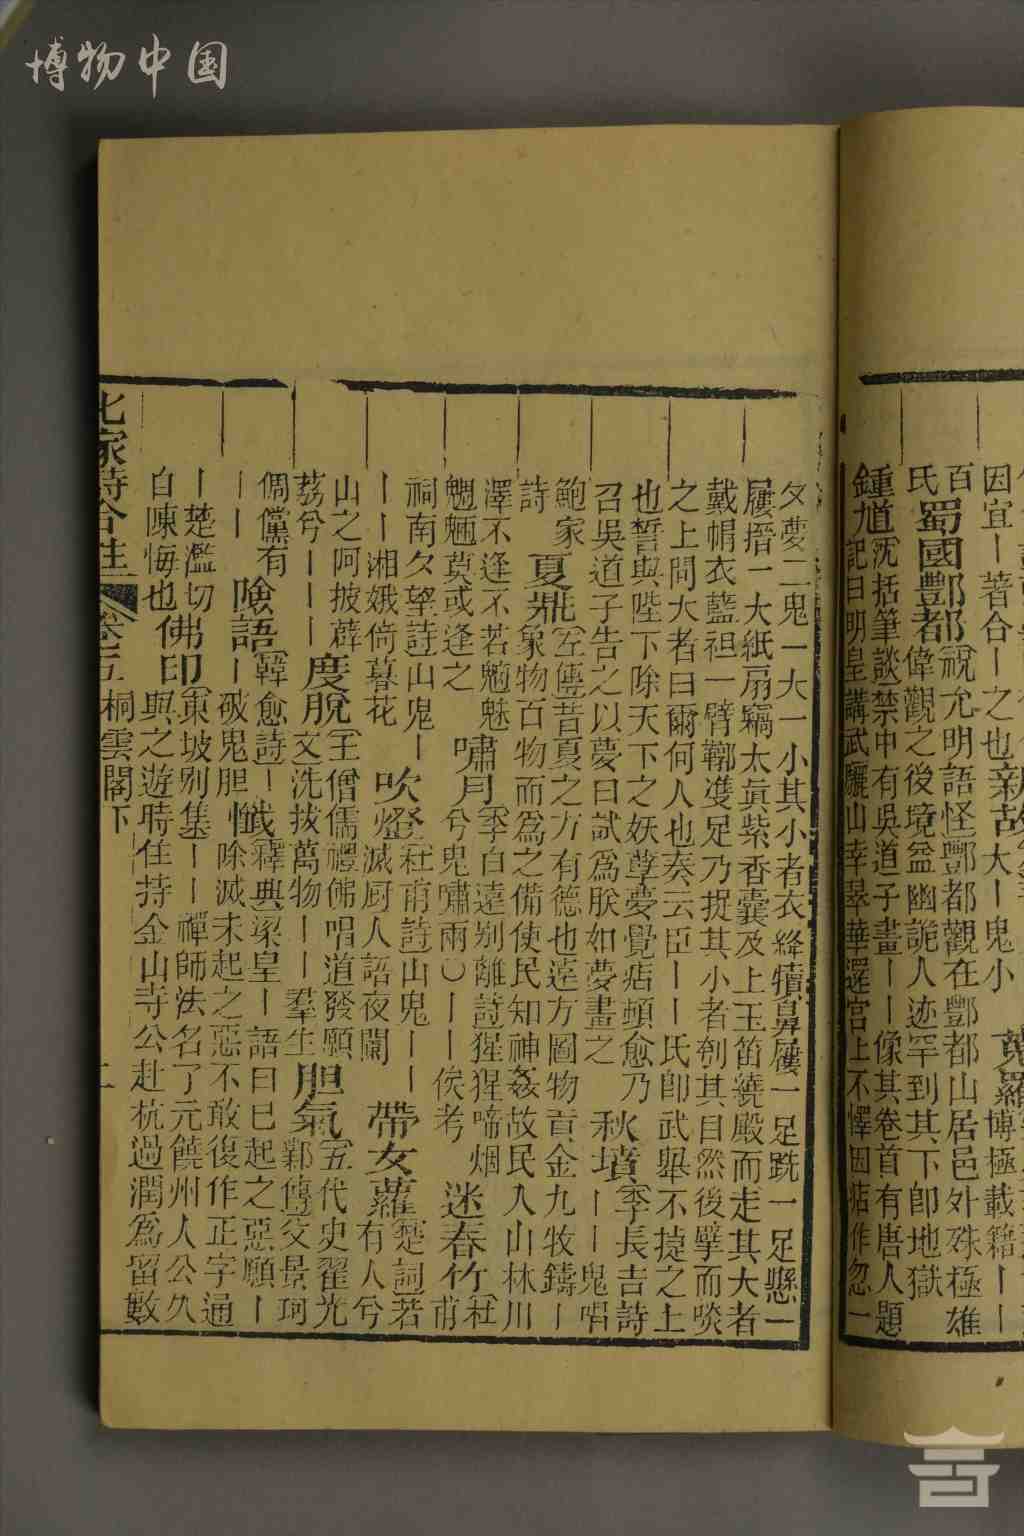 博物中国
因宜丨著合丨之也新故大丨鬼小
博極載籍丨丨
百
氏
蜀國酆都祝允明語怪酆都觀在酆都山居邑外殊極雄
偉觀之後境益幽詭人迹罕到其下卽地獄
鍾道沈括筆談禁中有吳道子畫丨丨像其卷首有唐人題
鍾九記曰明皇講武驪山幸翠華還宮上不懌因痁作忽一
夕夢二鬼一大一小其小者衣絳犢鼻屨一足跣一足懸一
屨搢一大紙扇竊太眞紫香囊及上玉笛繞殿而走其大者
戴帽衣藍袒一臂鞹雙足乃捉其小者刳其目然後擘而啖
之上問大者曰爾何人也奏云臣丨丨氏卽武舉不捷之士
也誓與陛下除天下之妖孽夢覺痁頓愈乃
召吳道子告之以夢曰試爲朕如夢畫之
秋墳李長吉詩
丨丨鬼唱
鮑家
詩
夏鼎左傳昔夏之方有德也遠方圖物貢金九牧鑄丨
象物百物而爲之備使民知神姦故民入山林川
澤不逢不若魑魅
魍魎莫或逢之
嘯月李白遠别離詩猩猩啼烟
兮鬼嘯雨〇丨丨俟考
迷春竹杜
甫
祠南夕望詩山鬼丨
丨丨湘娥倚暮花
吹燈杜甫詩山鬼丨丨
滅厨人語夜闌
帶女蘿楚詞若
有人兮
山之阿披薜
荔兮丨丨丨
度脫王僧儒禮佛唱道發願
文洗拔萬物丨丨羣生
胆氣五代史翟光
鄴傳交景珂
倜儻有
丨丨
險語韓愈詩丨
丨破鬼胆
懺釋典梁皇丨語曰已起之惡願丨
除滅未起之惡不敢復作正字通
丨楚濫切
自陳悔也
佛印東坡别集丨丨禪師法名了元饒州人公久
與之遊時住持金山寺公赴杭過潤爲留數
七家詩合注
卷五
桐雲閣下
二